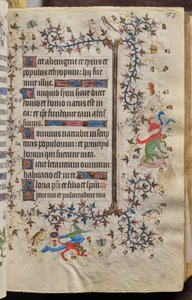 alienigene et tyrus et
populus ethyopum hii fue
runt illuc
Numquid syon dicet
homo et homo natus est in
ea et ipse fundauit eam altis
simus
Dominus narrabit in scrip
turis populorum et
qui fuerunt in ea
Sicut letantium omnium
habitacio est in te
Gloria pri et filio et spiri
Specie tua et pulcritudine tua